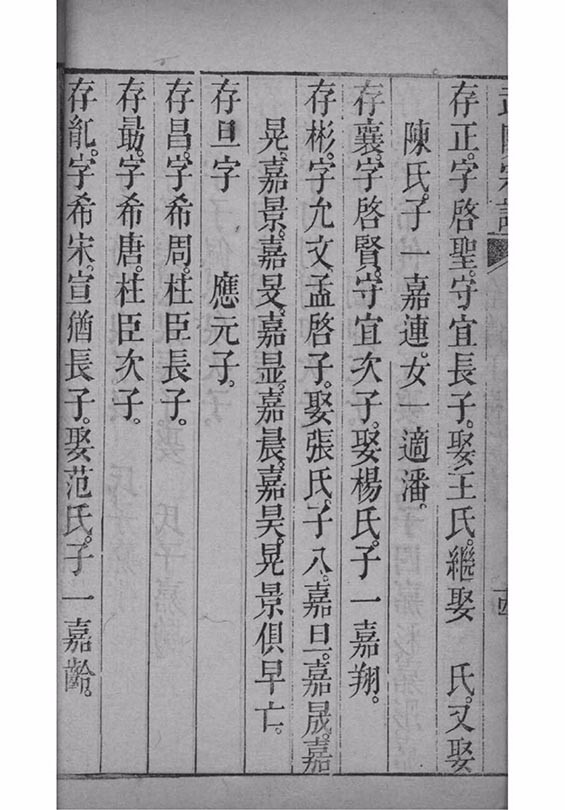 存正。字啓聖。守宜長子。娶王氏。繼娶　氏。又娶
陳氏。子一嘉連。女一適潘。
存襄。字啓賢。守宜次子。娶楊氏。子一嘉翔。
存彬。字允文。孟啓子。娶張氏。子八。嘉旦。嘉晟。嘉
晃。嘉景。嘉旻。嘉显。嘉晨。嘉昊。晃景俱早亡。
存旦字　　應元子。
存昌。字希周。柱臣長子。
存勗。字希唐。柱臣次子。
存胤。字希宋。宣猶長子。娶范氏。子一嘉齡。